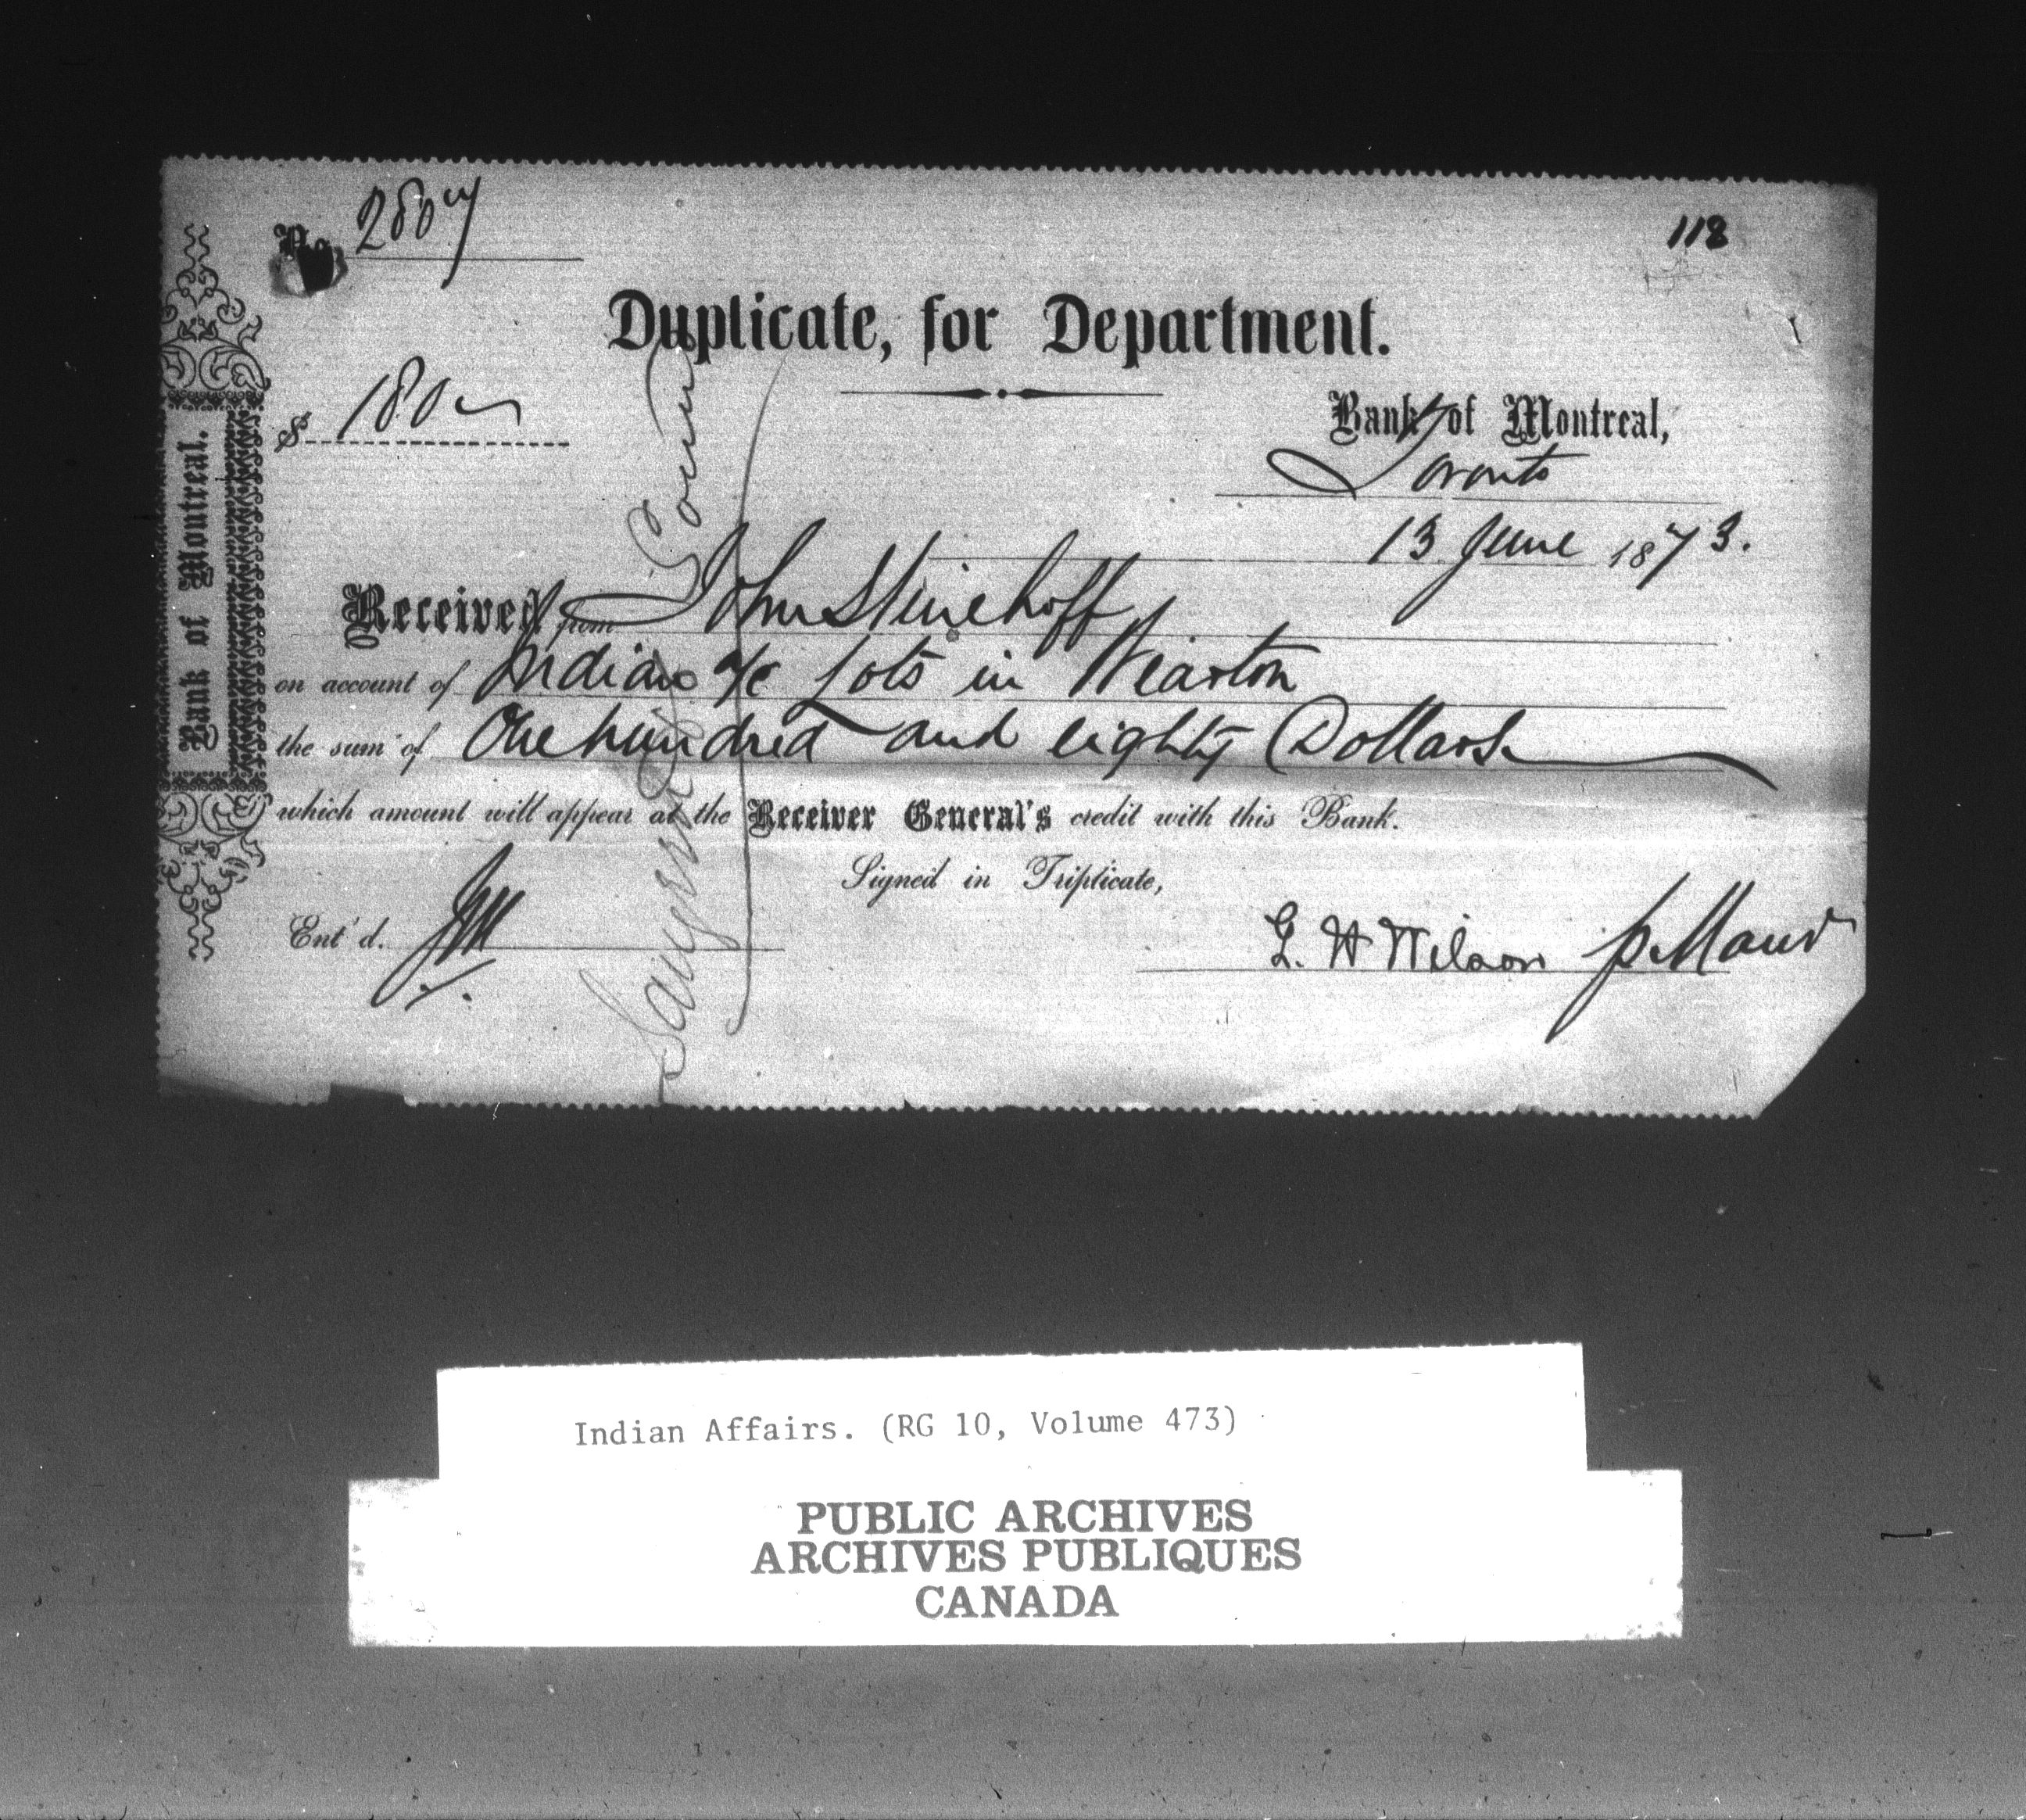 No 2807
118
Duplicate, for Department.
$ 180
Bank of Montreal,
Toronto
13 June 1873.
Received from John Steinhoff
on account of Indian a/c Lots in Wiarton
the sum of One hundred and eighty Dollars
which amount will appear at the Receiver General's credit with this Bank.
Signed in Triplicate,
Ent'd. JM
G. W Wilson p Manr
Bank of Montreal.
Indian Affairs. (RG 10, Volume 473)
PUBLIC ARCHIVES
ARCHIVES PUBLIQUES
CANADA